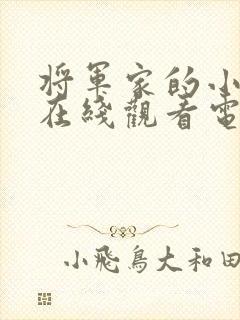 将军家的小
在线觀看電
小飛鳥大和田